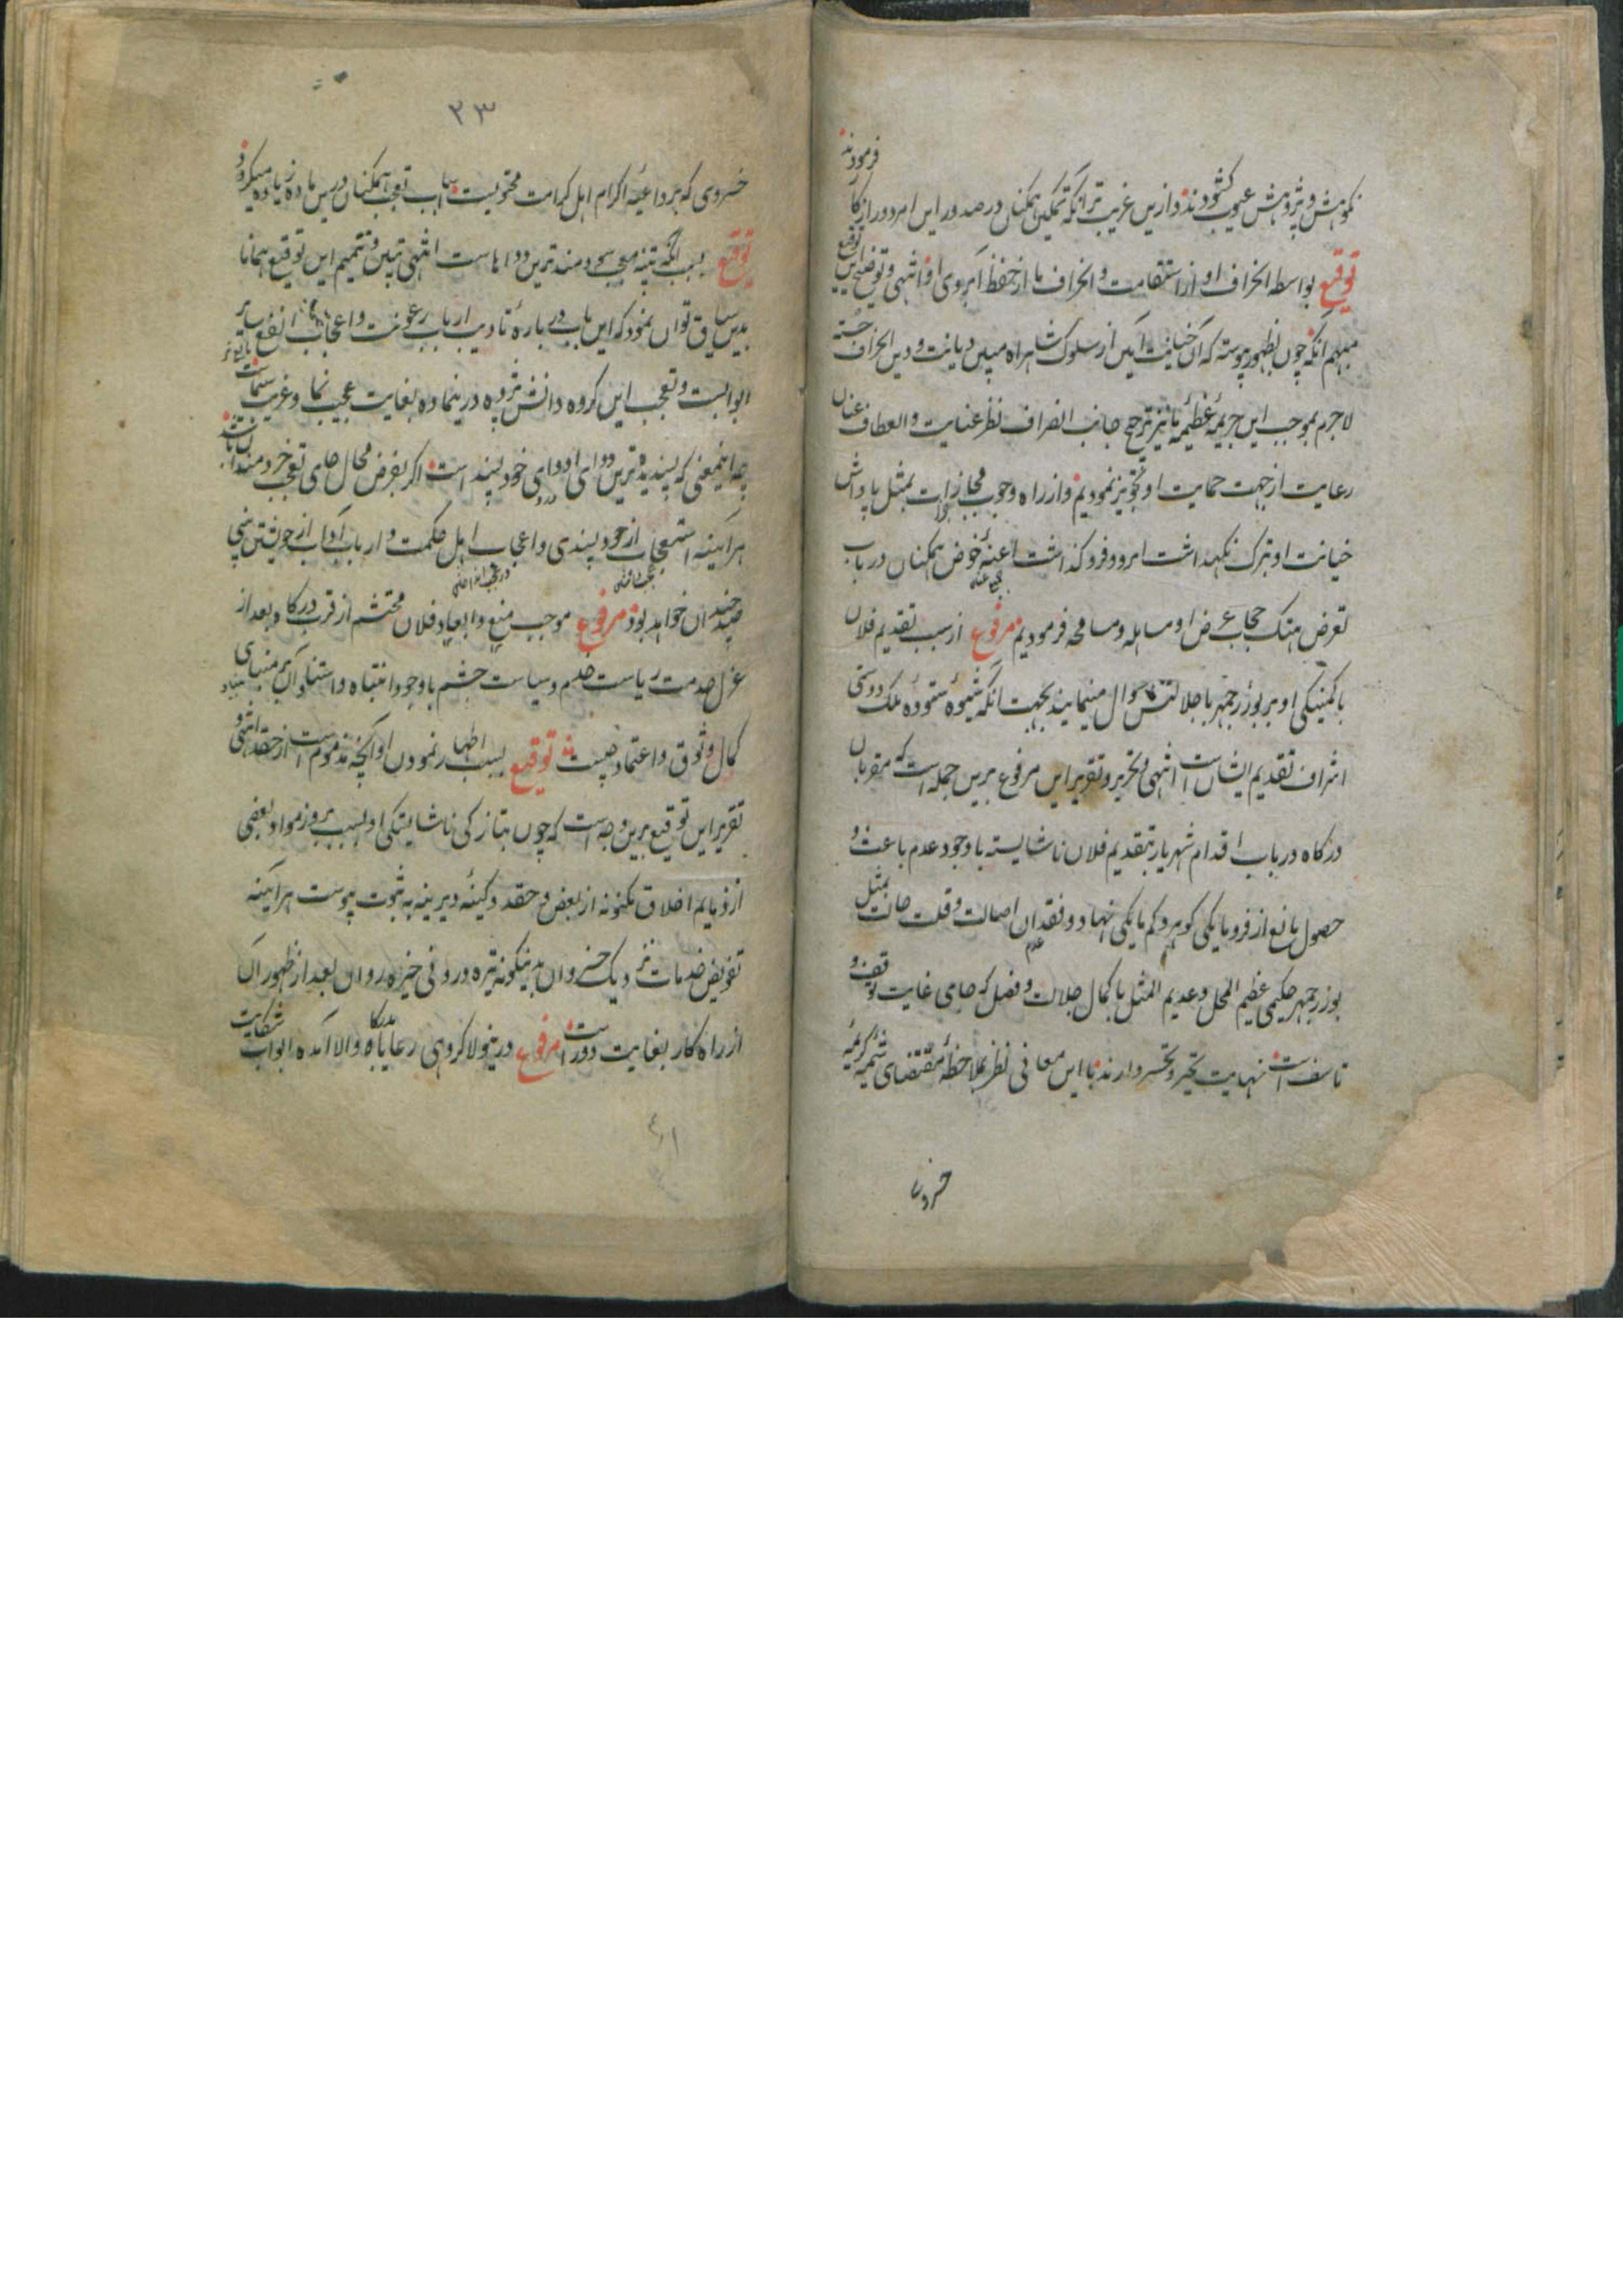 نکوهش و پژوهش عیوب کشودند و ازین غریب تر آنکه تمکین همکنان در صدور این امر دور از کار فرمودند
توقیع بواسطه انحراف او از استقامت و انحراف ما از حفظ آبروی او انتهی و توضیح این توقیع
مبهم آنکه چون بظهور پیوسته که آن خیانت آئین از سلوک شاهراه مبین دیانت و دین انحراف جسته
لاجرم بموجب این جریمهٔ عظیمه ما نیز ترجیح جانب انصراف نظر عنایت و انعطاف عنان
رعایت از جهت حمایت او تجویز نمودیم و از راه وجوب مجازات بمثل پاداش
خیانت او بترک نکهداشت امر و فروکذاشت اعنهٔ خوض همکنان در باب
تعرض هتک حجاب عرض او مساهله و مسامحه فرمودیم مرفوع از سبب تقدیم فلان
با کمینکی او بر بوزرجمهر با جلالتش سوال مینمایند بجهت آنکه شیوه ستوده ملک دوستی
اشراف تقدیم ایشان است انتهی و تحریر و تقریر این مرفوع برین جمله است که مقربان
درکاه در باب اقدام شهریار بتقدیم فلان ناشایسته با وجود عدم باعث و
حصول مانع از فرومایکی کوهر و کم مایکی نهاد و فقدان اصالت و قلت حالت بمثل
بوزرجمهر حکیمی عظیم المحل و عدیم المثل با کمال جلالت و فضل که جای غایت توقف و
تاسف است نهایت تحیر و تحسر دارند با این معانی نظر بملاحظهٔ مقتضای شیمهٔ کریمهٔ
خسروی
۲۳
خسروی که بر داعیهٔ اکرام اهل کرامت محتویست اسباب تعجب همکنان درین ماده زیاده میکردد
توقیع بسبب آنکه تنبه معجب سودمند ترین دواهاست انتهی تبیین و تتمیم این توقیع همانا
بدین سیاق توان نمود که این باب در باره تادیب ارباب رعونت و اعجاب انفع سایر
ابوابست و تعجب این کروه دانش پژوه درینماده بغایت عجیب نما و غریب سماست
چه اینمعنی که پسندیده ترین دوای ادوای خود پسند است اکر بفرض محال جای تعجب خردمندان باشد
هرآینه استعجاب از خودپسندی و اعجاب اهل حکمت و ارباب آداب از خویشتن بینی
چندان خواهد بود مرفوع موجب منع و ابعاد فلان محتشم از قرب درکاه بعد از
عزل خدمت ریاست خدم و سیاست حشم با وجود انتباه و استناد آن بر مبنای
کمال وثوق و اعتماد چیست توقیع بسبب اظهار نمودن او آنچه مذموم است از حقد انتهی و
تقریر این توقیع برین وجه است که چون بتازکی ناشایستکی او بسبب بروز مواد بعضی
از ذمایم اخلاق مکنونه از بغض و حقد و کینهٔ دیرینه به ثبوت پیوست هرآینه
تفویض خدمات نزدیک خسروان بدینکونه تیره درونی خیره روان بعد از ظهور آن
از راه کار بغایت دور است مرفوع درینولا کروهی رعایا بدرکاه والا آمده ابواب شکایت